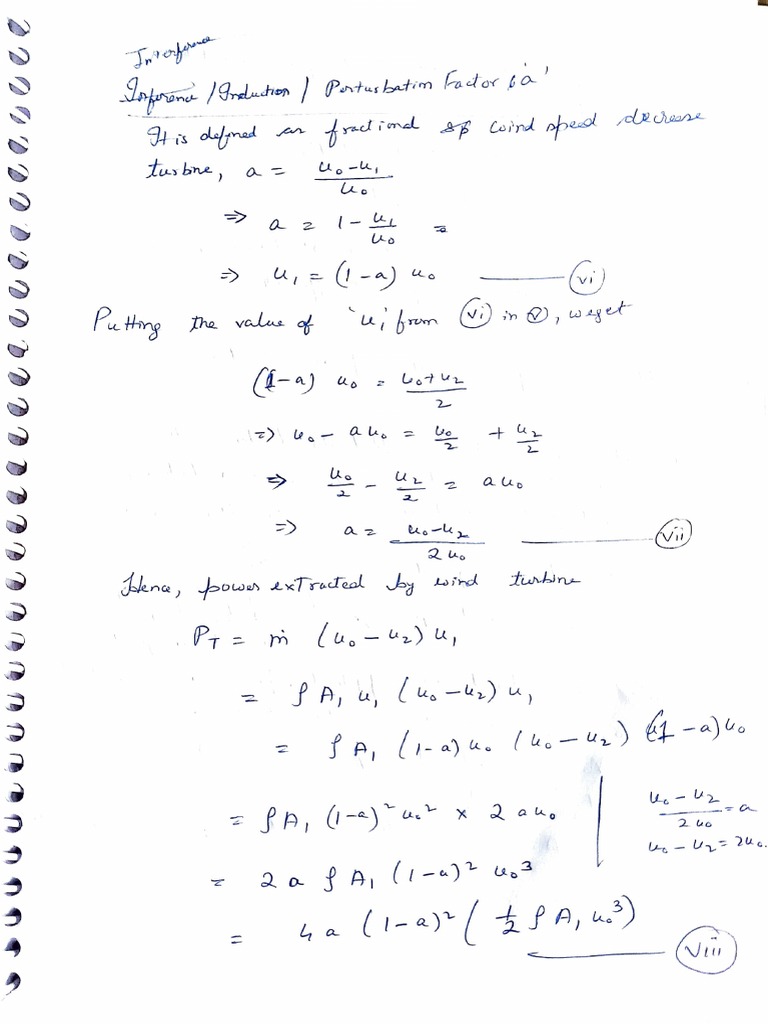 Interference
Inference / Induction / Perturbation Factor 'a'
It is defined as fractional of wind speed decrease
turbine, a = (u₀-u₁)/u₀
⇒ a = 1 - u₁/u₀ =
⇒ u₁ = (1-a) u₀ ——— (vi)
Putting the value of 'u₁' from (vi) in (v), we get
(1-a) u₀ = (u₀+u₂)/2
⇒ u₀ - au₀ = u₀/2 + u₂/2
⇒ u₀/2 - u₂/2 = au₀
⇒ a = (u₀-u₂)/2u₀ ——— (vii)
Hence, power extracted by wind turbine
P_T = ṁ (u₀-u₂) u₁
= ρ A₁ u₁ (u₀-u₂) u₁
= ρ A₁ (1-a) u₀ (u₀-u₂) (1-a) u₀
= ρ A₁ (1-a)² u₀² × 2au₀
(u₀-u₂)/2u₀ = a
u₀-u₂ = 2u₀.
= 2a ρ A₁ (1-a)² u₀³
= 4a (1-a)² (½ ρ A₁ u₀³)
——— (viii)